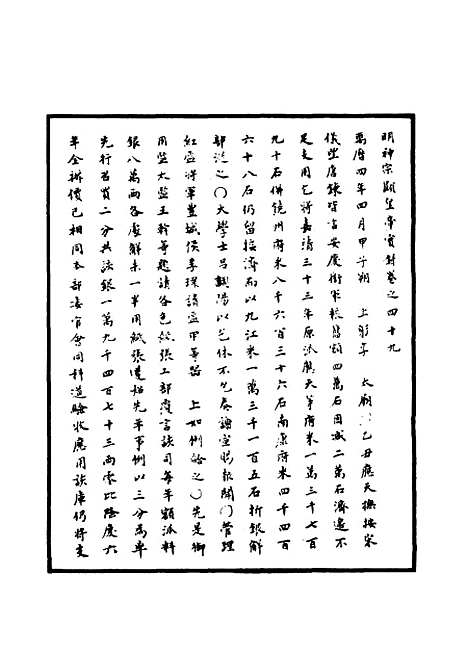 明神宗顯皇帝實錄卷之四十九
萬曆四年四月甲子朔　上彰享　太廟○乙丑應天撫按宋
儀望唐鍊皆言安慶衛軍粮舊額四萬石因減二萬石濟邊不
足支用乞將嘉靖三十三年原派應天等府米一萬三千七百
九十石併饒州府米八千六百三十六石南康府米四千四百
六十八石仍留接濟而以九江米一萬三千一百五石折銀解
部從之○大學士呂調陽以乞休不允奏謝宣賜報聞○管理
紅盔將軍豐城侯李環請盔甲等器　上如例給之○先是御
用監太監王幹等題請各色紙張工部覆言該司每年額派料
銀八萬兩各處解未一半用紙張儘始先年事例以三分為率
先行召買二分共該銀一萬九千四百七十三兩零比隆慶六
年全辦價已相同本部委官會同科道驗收應用該庫仍將支